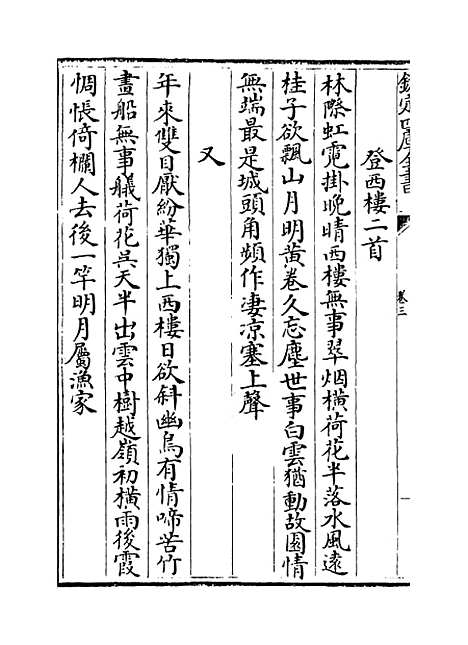 欽定四庫全書
卷三
登西樓二首
林際虹霓掛晚晴西樓無事翠烟橫荷花半落水風遠
桂子欲飄山月明黃卷久忘塵世事白雲猶動故園情
無端最是城頭角頻作凄涼塞上聲
又
年來雙目厭紛華獨上西樓日欲斜幽鳥有情啼苦竹
畫船無事艤荷花吳天半出雲中樹越嶺初橫雨後霞
惆悵倚欄人去後一竿明月屬漁家